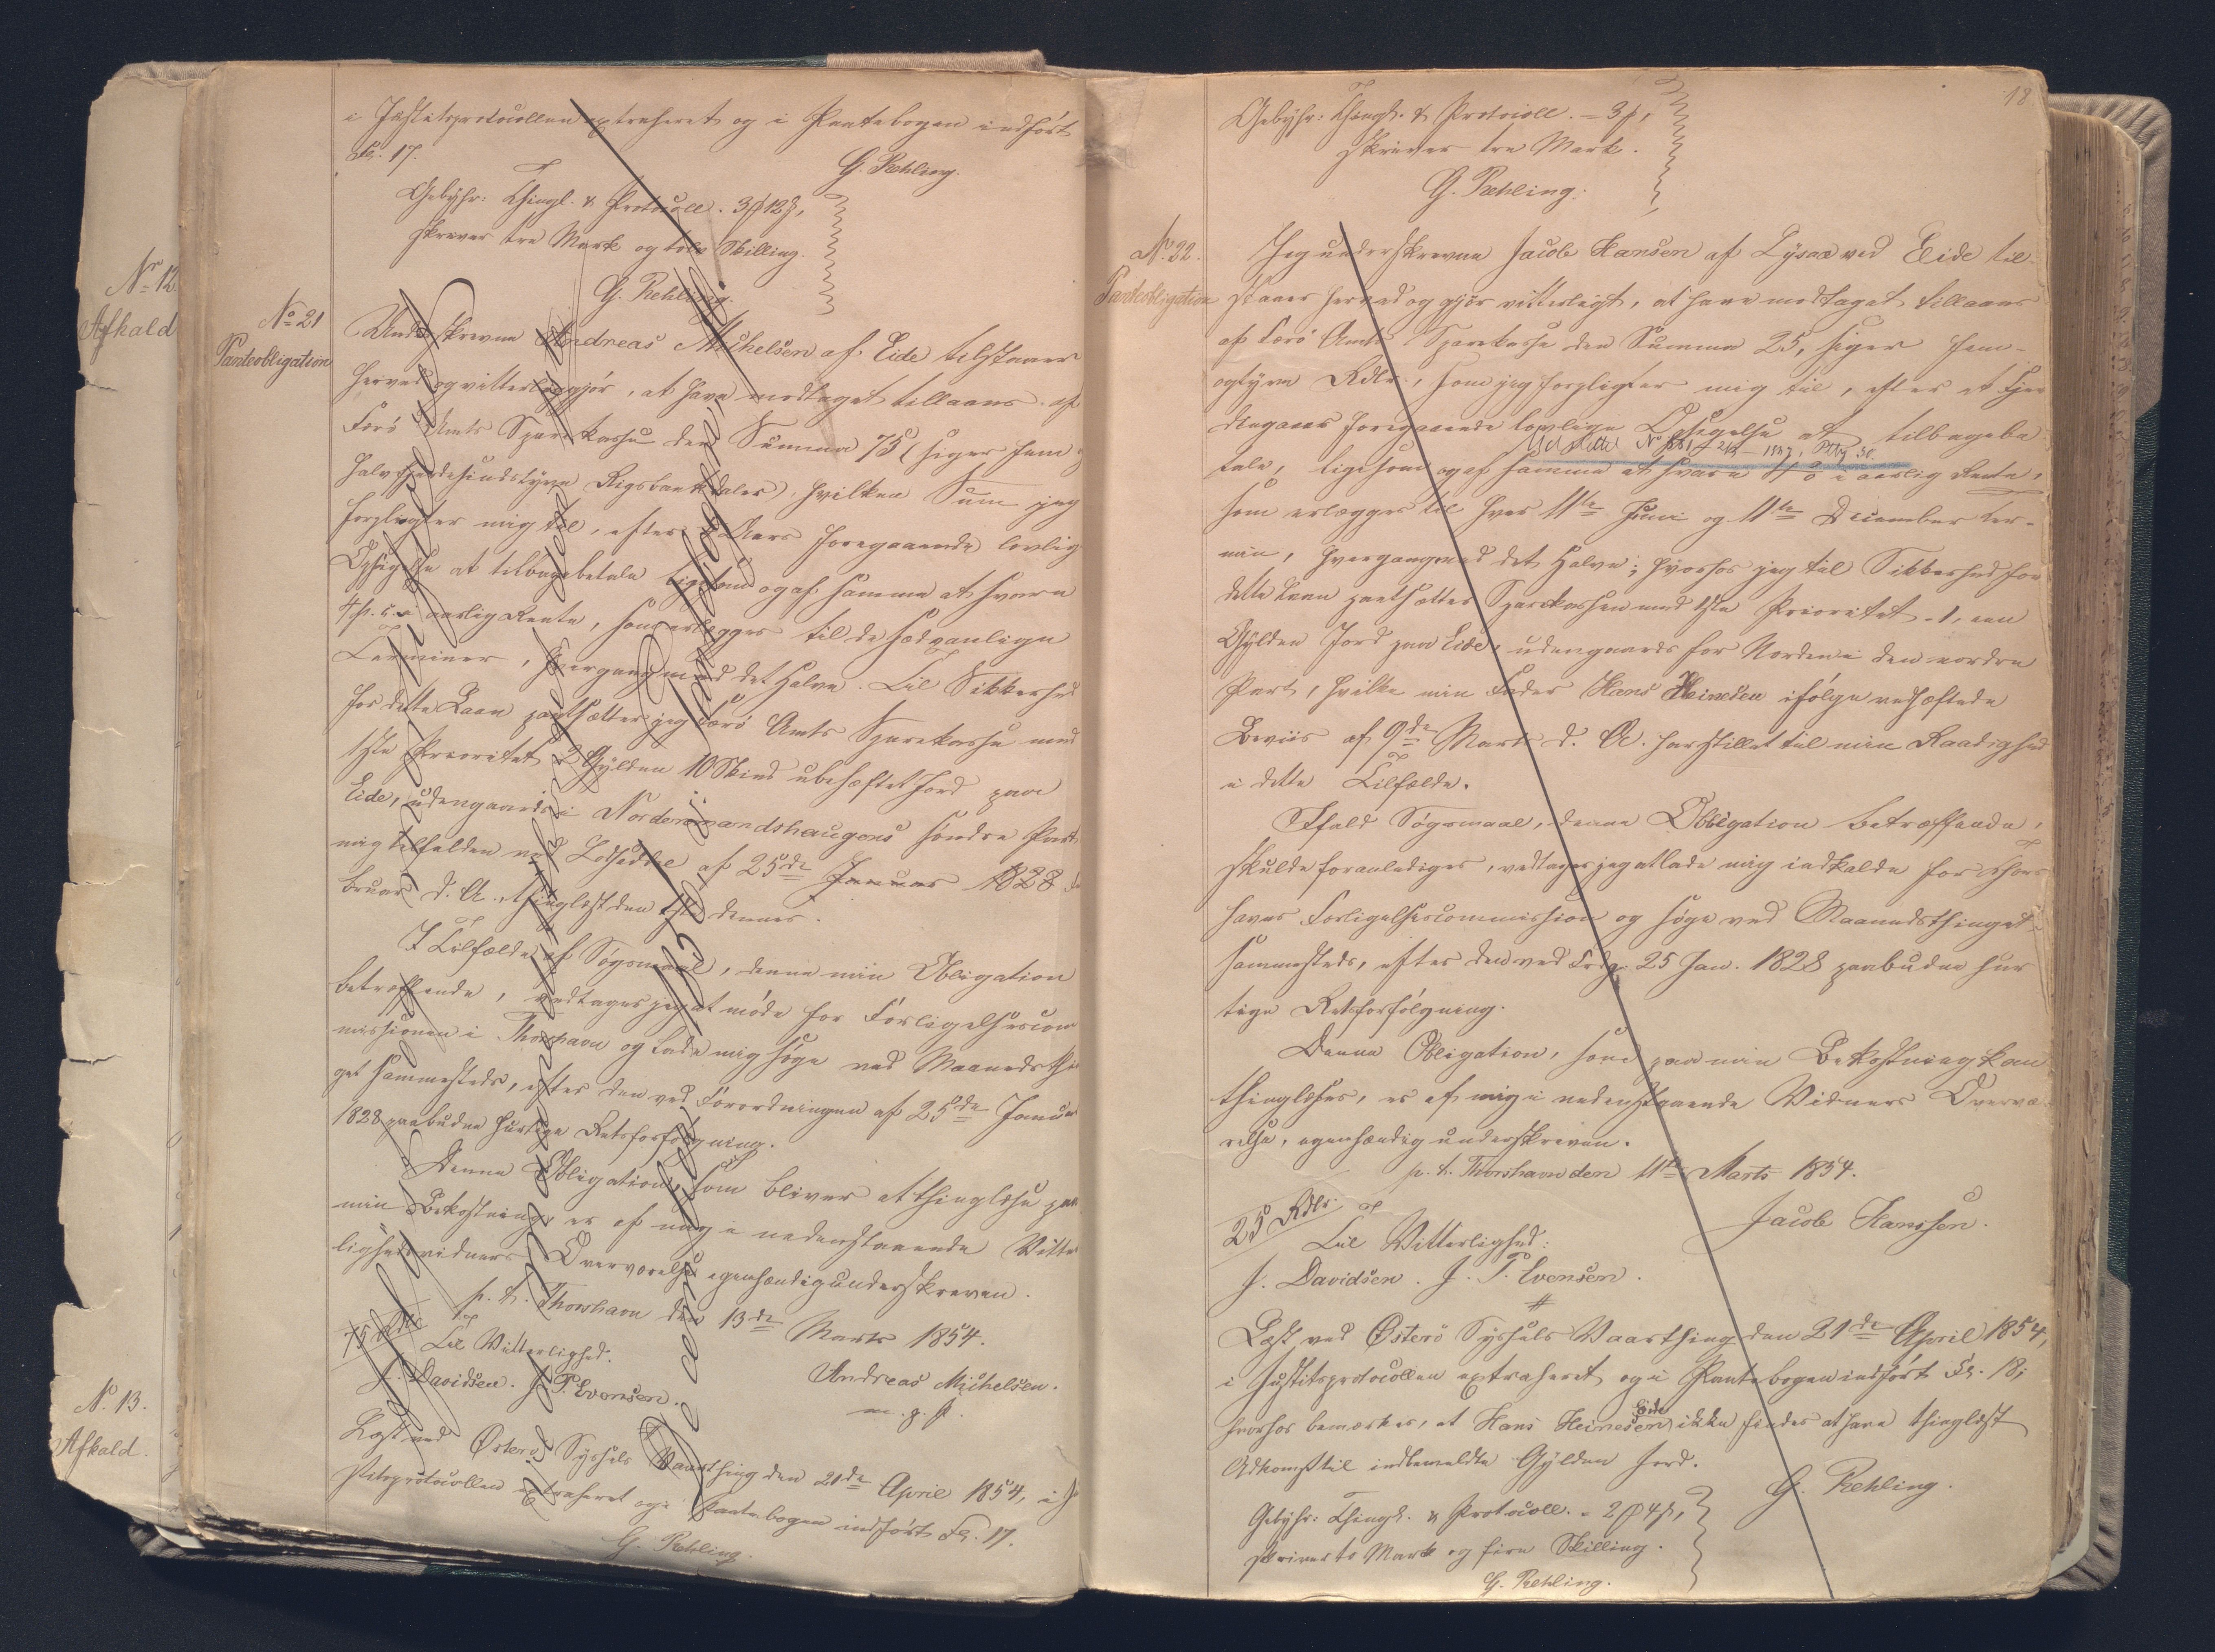 i Justitsprotocollen extraheret og i Pantebogen indført
Fol. 17.
G. Rehling.
Gebyhr: Thingl. & Protocoll. 3 12,
skriver tre Mark og tolv Skilling.
G. Rehling.
No 21
Panteobligation
Underskrevne Andreas Michelsen af Eide tilstaaer
herved og vitterliggjør, at have modtaget tillaans af
Færø Amts Sparekasse den Summa 75 (siger fem og
halvfjerdesindstyve Rigsbankdaler), hvilken Sum jeg
forpligter mig til, efter Aars foregaaende lovlig
Opsigelse at tilbagebetale ligesom og af samme at svare
4 p. c. i aarlig Rente, som erlægges til de sædvanlige
Terminer, hvergang med det Halve. Til Sikkerhed
for dette Laan pantsætter jeg Færø Amts Sparekasse med
1ste Prioritet 2 Gylden 10 Skind ubehæftet Jord paa
Eide, udengaards i Nordenmandshaugens søndre Part
mig tilfalden ved Lodseddel af 25de Januar 1828
bruar d. A. thinglæst den dennes.
I Tilfælde af Søgsmaal, denne min Obligation
betræffende, vedtager jeg at møde for Forligelsescom
missionen i Thorshavn og lade mig søge ved Maanedsthin
get sammesteds, efter den ved Forordningen af 25de Januar
1828 paabudne hurtige Retsforfølgning.
Denne Obligation, som bliver at thinglæse paa
min Bekostning er af mig i nedenstaaende Vitter
lighedsvidners Overværelse egenhændig underskreven.
p. t. Thorshavn den 13de Marts 1854.
75 Rdlr
Til Vitterlighed:
J. Davidsen. J. P. Evensen.
Andreas Michelsen.
m. p. P.
Læst ved Østerø Syssels Vaarthing den 21de April 1854, i Ju
stitsprotocollen extraheret og i Pantebogen indført Fol. 17.
G. Rehling.
No 12.
Afkald
N. 13.
Afkald.
18
Gebyhr: Thingl. & Protocoll. = 3,
skriver tre Mark.
G. Rehling.
No 22.
Panteobligation
Jeg underskrevne Jacob Hansen af Lysaa ved Eide til-
staaer herved og gjør vitterligt, at have modtaget tillaans
af Færø Amts Sparekasse den Summa 25, siger fem-
ogtyve Rdlr., som jeg forpligter mig til, efter et Fjer
dingaars foregaaende lovlige Opsigelse at tilbagebe
tale, ligesom og af samme at svare 4 p c i aarlig Rente,
som erlægges til hver 11te Juni og 11te December Ter-
min, hvergang med det Halve; hvorhos jeg til Sikkerhed for
dette Laan pantsætter Sparekassen med 1ste Prioritet 1, een
Gylden Jord paa Eide, udengaards for Norden i den nordre
Part, hvilke min Fader Hans Heinesen ifølge vedhæftede
Beviis af 9de Marts d. A. har stillet til min Raadighed
i dette Tilfælde.
Ifald Søgsmaal, denne Obligation betræffende,
skulde foranlediges, vedtager jeg at lade mig indkalde for Thors
havns Forligelsescommission og søge ved Maanedsthinget
sammesteds, efter den ved Frdg. 25 Jan. 1828 paabudne hur
tige Retsforfølgning.
Denne Obligation, som paa min Bekostning kan
thinglæses, er af mig i nedenstaaende Vidners Overvæ
relse, egenhændig underskreven.
p. t. Thorshavn den 11te Marts 1854.
25 Rdlr.
Jacob Hanssen.
Til Vitterlighed:
J. Davidsen. J. P. Evensen.
Læst ved Østerø Syssels Vaarthing den 21de April 1854,
i Justitsprotocollen extraheret og i Pantebogen indført Fol. 18;
hvorhos bemærkes, at Hans Heinesen Eide ikke findes at have thinglæst
Adkomst til indbemeldte Gylden Jord.
G. Rehling.
Gebyhr: Thingl. & Protocoll. = 2 4,
skriver to Mark og fire Skilling.
G. Rehling.